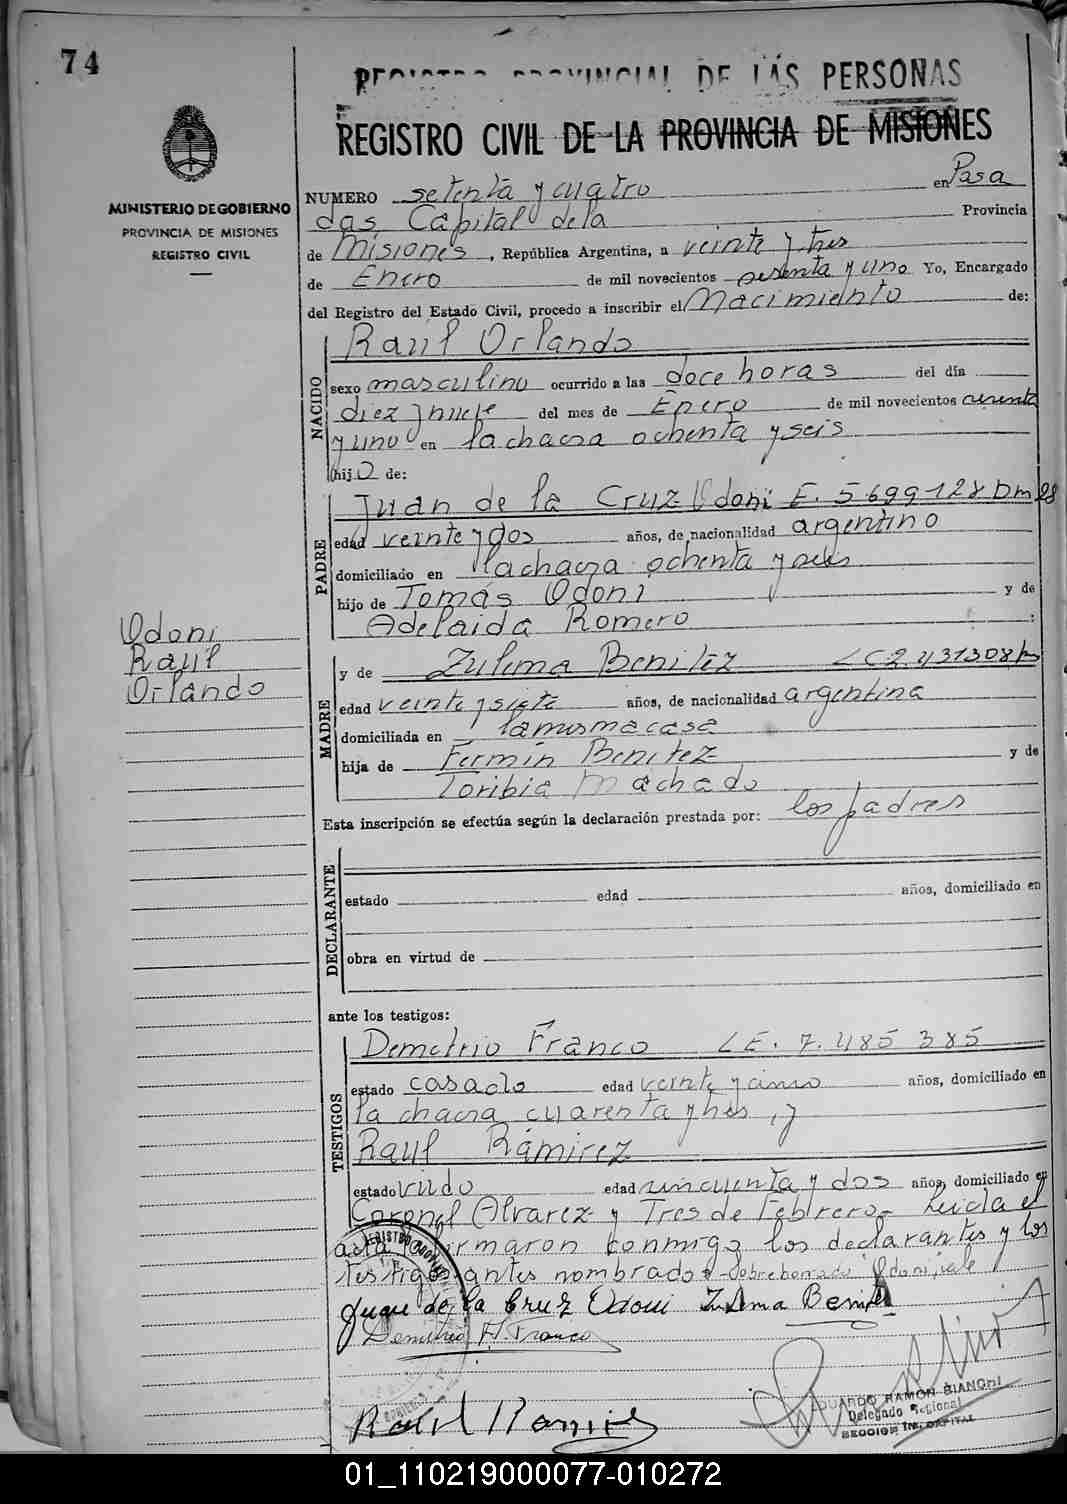 74
REGISTRO PROVINCIAL DE LAS PERSONAS
REGISTRO CIVIL DE LA PROVINCIA DE MISIONES
MINISTERIO DE GOBIERNO
PROVINCIA DE MISIONES
REGISTRO CIVIL
NUMERO setenta y cuatro en Posa
das Capital de la Provincia
de Misiones, República Argentina, a veinte y tres
de Enero de mil novecientos sesenta y uno Yo, Encargado
del Registro del Estado Civil, procedo a inscribir el Nacimiento de:
NACIDO
Raúl Orlando
sexo masculino ocurrido a las doce horas del día
diez y nueve del mes de Enero de mil novecientos
y uno en la chacra ochenta y seis
hijo de:
PADRE
Juan de la Cruz Odoni E. 5699128 Dm 28
edad veinte y dos años, de nacionalidad argentino
domiciliado en la chacra ochenta y seis
hijo de Tomás Odoni y de
Adelaida Romero
Odoni
Raúl
Orlando
MADRE
y de Zulema Benitez LC 2.431308
edad veinte y siete años, de nacionalidad argentina
domiciliada en la misma casa
hija de Fermín Benitez y de
Toribia Machado
Esta inscripción se efectúa según la declaración prestada por: los padres
DECLARANTE
estado edad años, domiciliado en
obra en virtud de
ante los testigos:
TESTIGOS
Demetrio Franco LE. 7.485 385
estado casado edad veinte y cinco años, domiciliado en
la chacra cuarenta y tres, y
Raul Ramirez
estado viudo edad cincuenta y dos años, domiciliado en
Coronel Alvarez y Tres de Febrero.- Leída el
acta la firmaron conmigo los declarantes y los
testigos antes nombrados -sobreborrado Odoni, vale
Juan de la Cruz Odoni Zulema Benitez
Demetrio F. Franco
Raul Ramirez
EDUARDO RAMON BIANCHI
Delegado Regional
SECCION CAPITAL
01_110219000077-010272